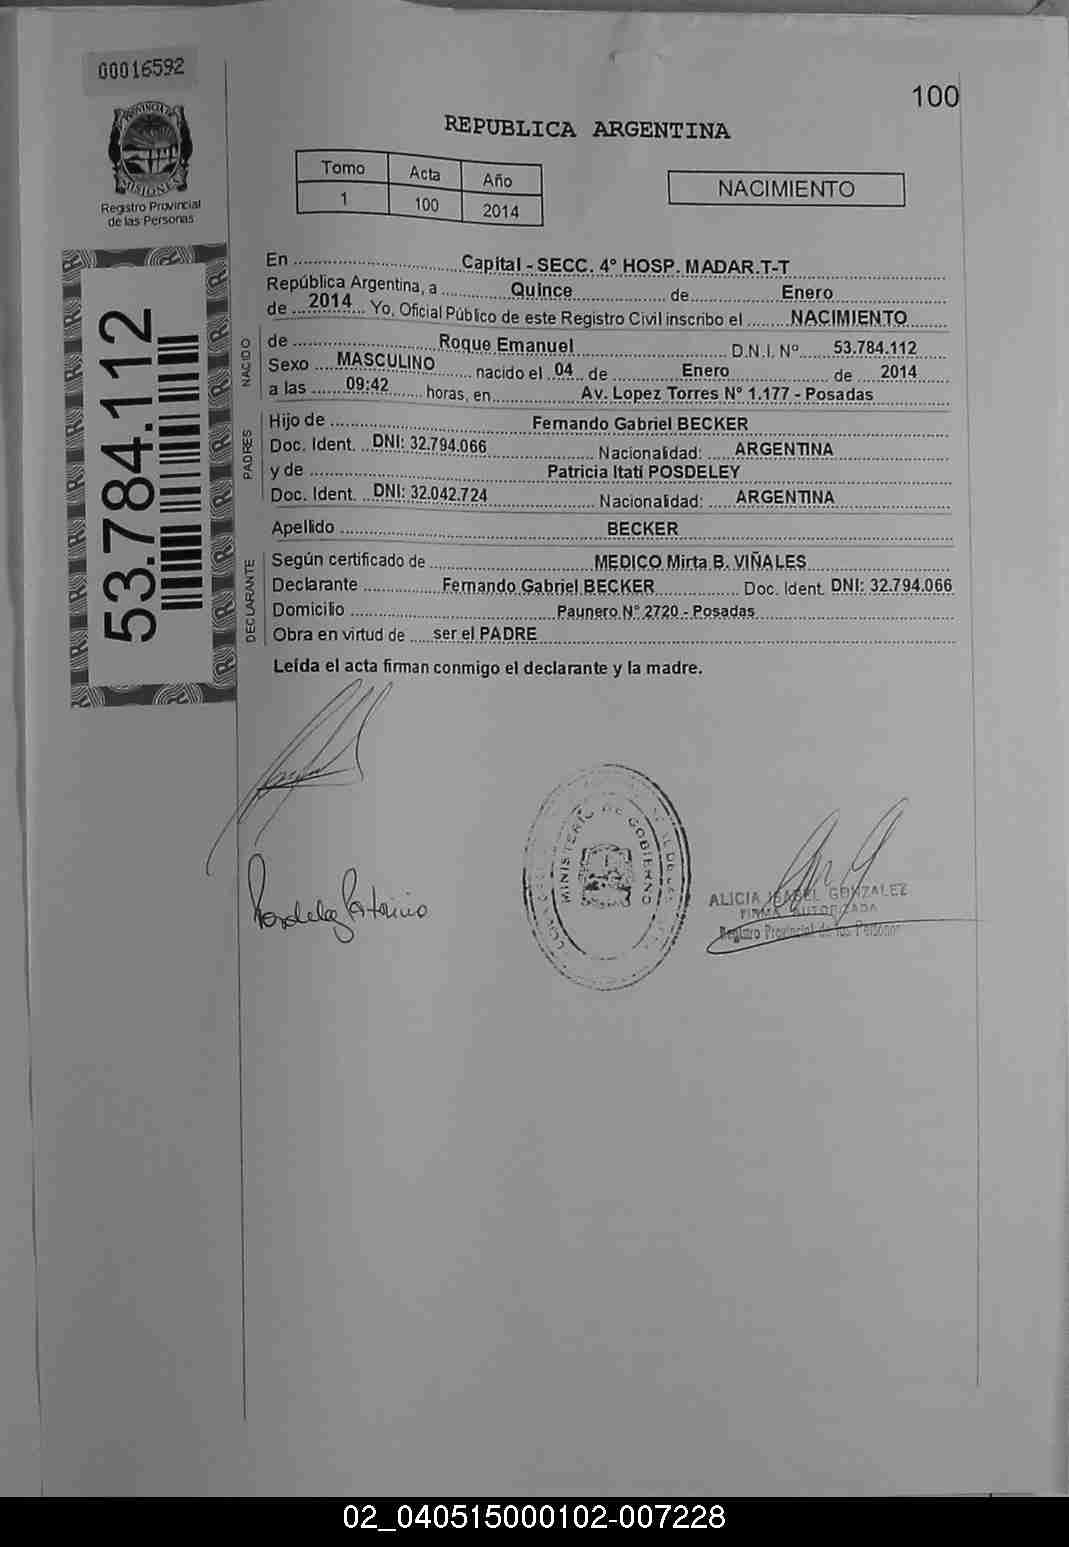 00016592
100
PROVINCIA DE
MISIONES
Registro Provincial
de las Personas
REPUBLICA ARGENTINA
Tomo Acta Año
1 100 2014
NACIMIENTO
53.784.112
En Capital - SECC. 4° HOSP. MADAR.T-T
República Argentina, a Quince de Enero
de 2014 Yo, Oficial Público de este Registro Civil inscribo el NACIMIENTO
NACIDO
de Roque Emanuel D.N.I. N° 53.784.112
Sexo MASCULINO nacido el 04 de Enero de 2014
a las 09:42 horas, en Av. Lopez Torres N° 1.177 - Posadas
PADRES
Hijo de Fernando Gabriel BECKER
Doc. Ident. DNI: 32.794.066 Nacionalidad: ARGENTINA
y de Patricia Itatí POSDELEY
Doc. Ident. DNI: 32.042.724 Nacionalidad: ARGENTINA
Apellido BECKER
DECLARANTE
Según certificado de MEDICO Mirta B. VIÑALES
Declarante Fernando Gabriel BECKER Doc. Ident. DNI: 32.794.066
Domicilio Paunero N° 2720 - Posadas
Obra en virtud de ser el PADRE
Leída el acta firman conmigo el declarante y la madre.
MINISTERIO DE GOBIERNO
Posdeley Patricia
ALICIA ISABEL GONZALEZ
FIRMA AUTORIZADA
Registro Provincial de las Personas
02_040515000102-007228